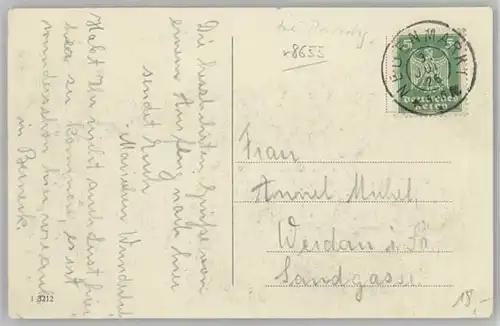 Die herzlichsten Grüße von
einem Ausflug nach hier
sendet Euch
Mariechen
Habt Ihr nicht auch Lust hier
her zu kommen, es ist
wunderschön hier,
in Berneck.
x8655
NEUENMARKT
5
Deutsches
Reich
Frau
Michel,
Werdau i. Sa.
Landgasse
1 3212
18,-